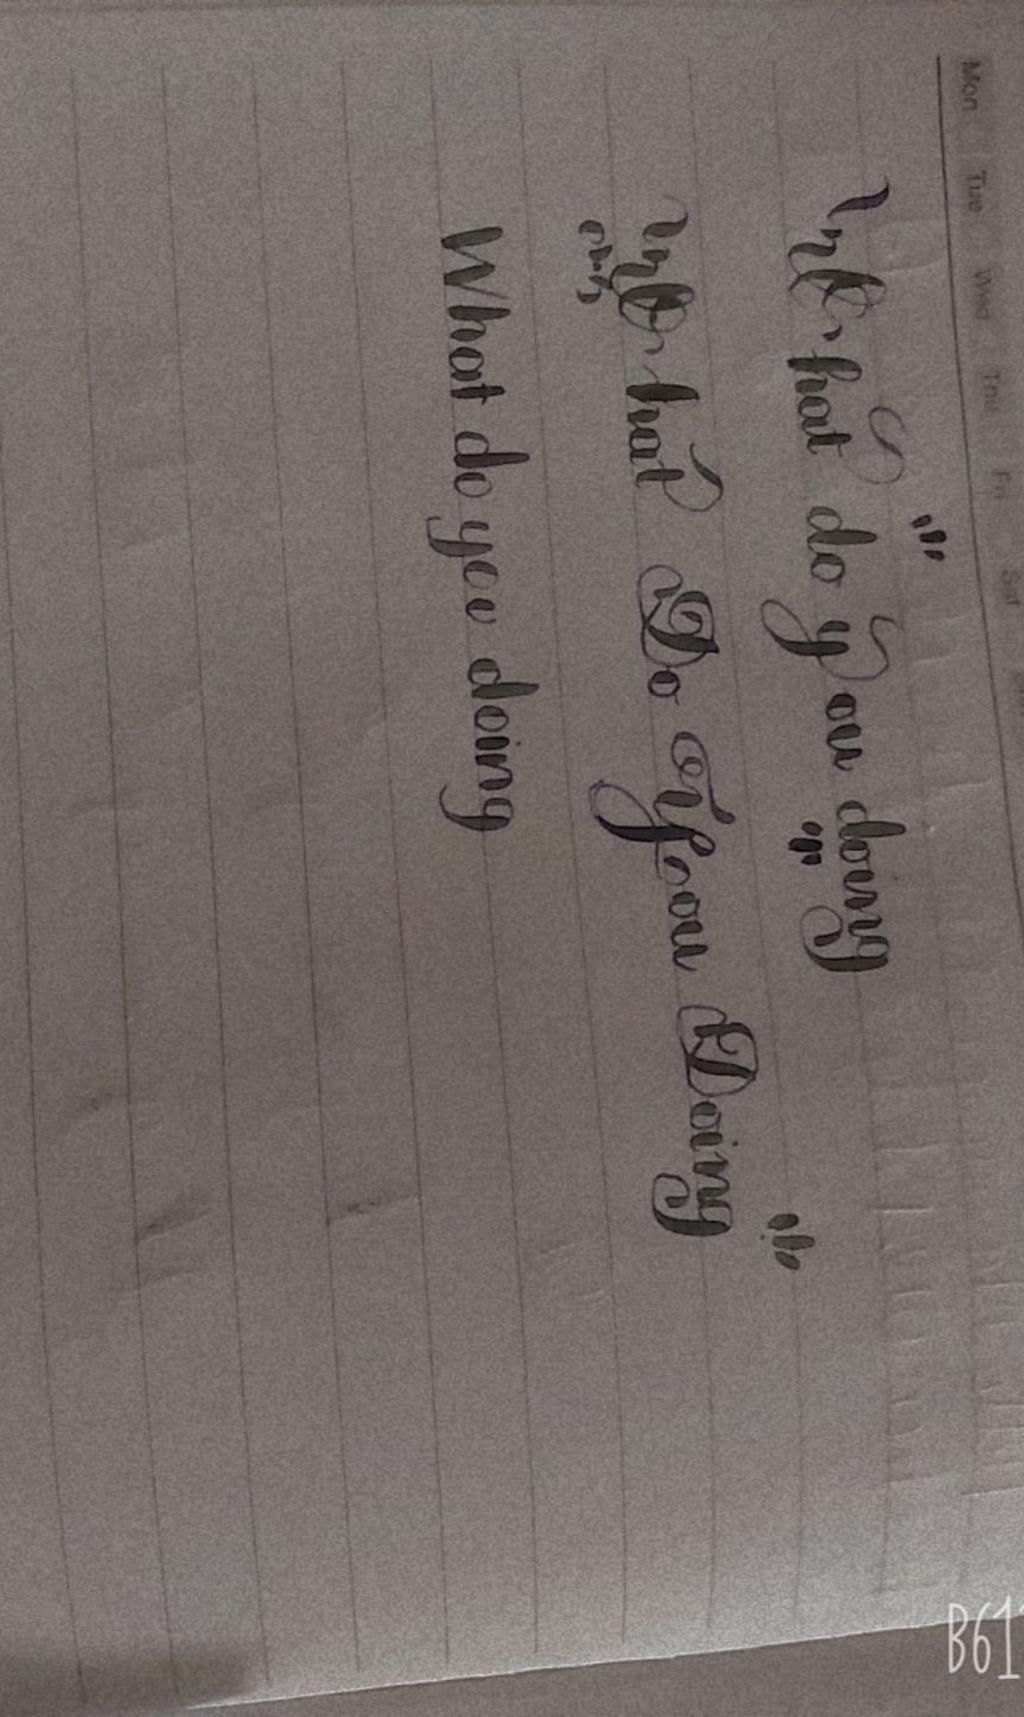 Mon Tue Wed Thu Fri Sat
What do you doing
What Do You Doing
What do you doing
B61